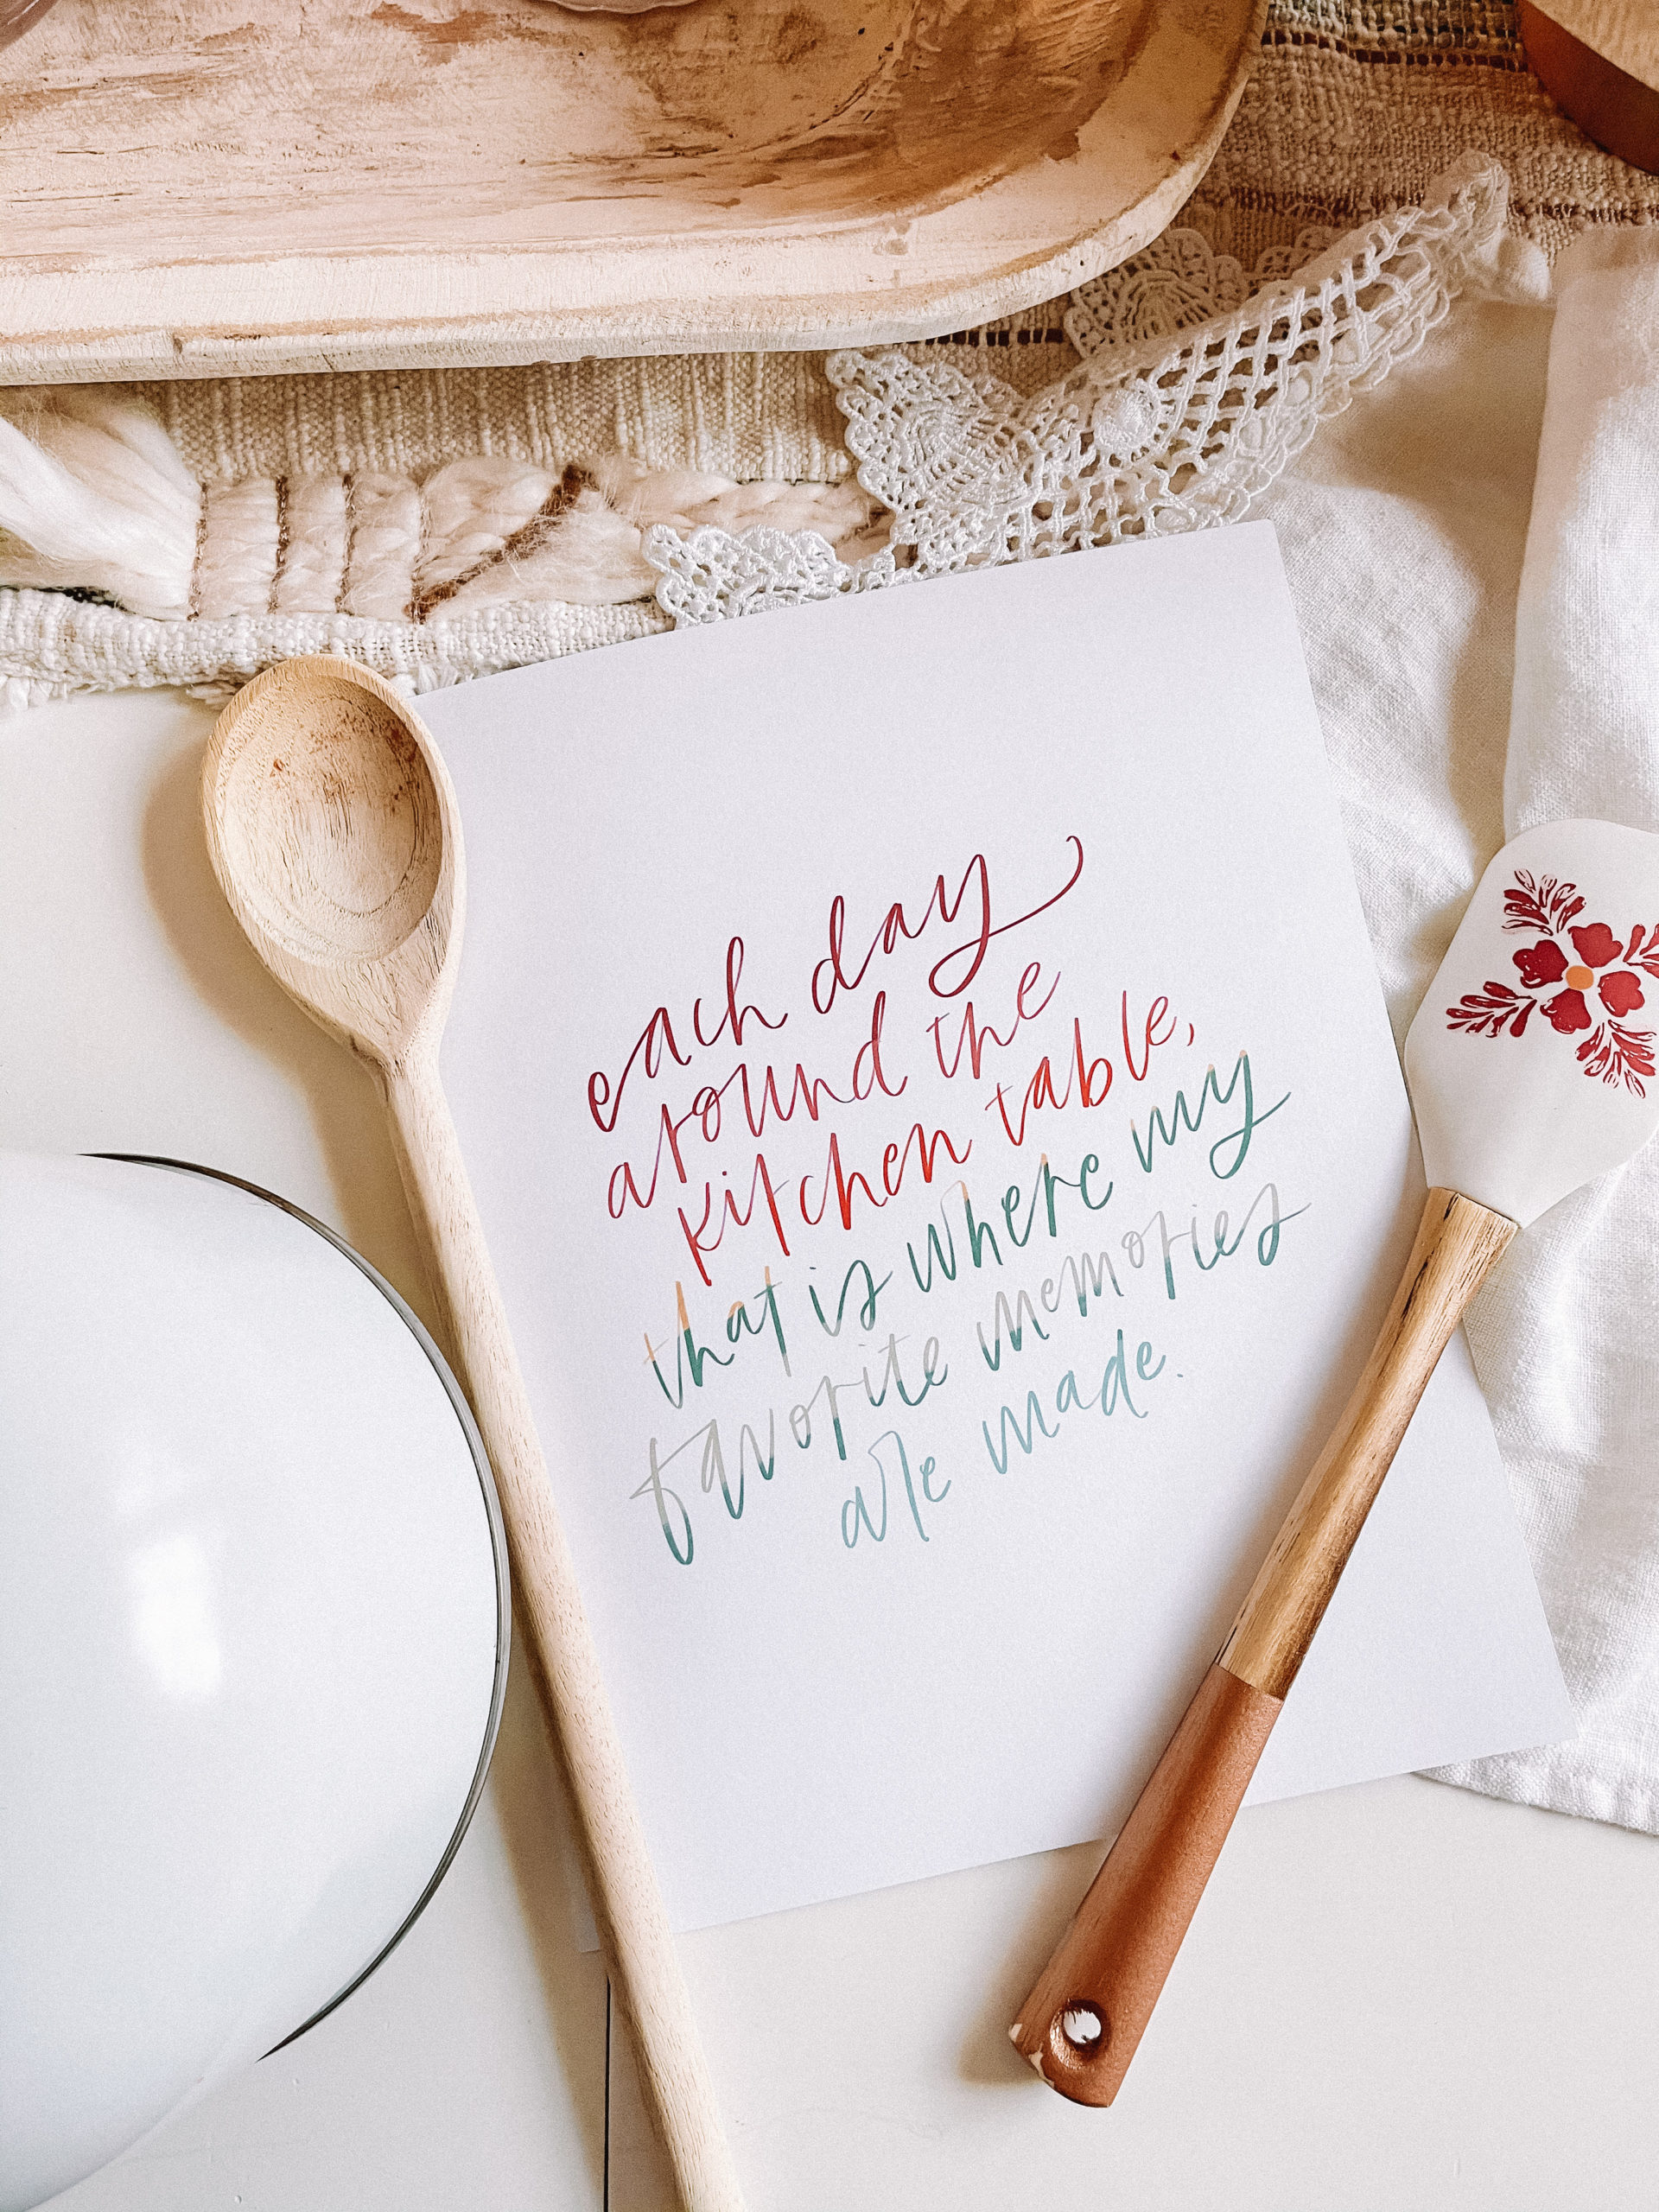 each day
around the
kitchen table,
that is where my
favorite memories
are made.